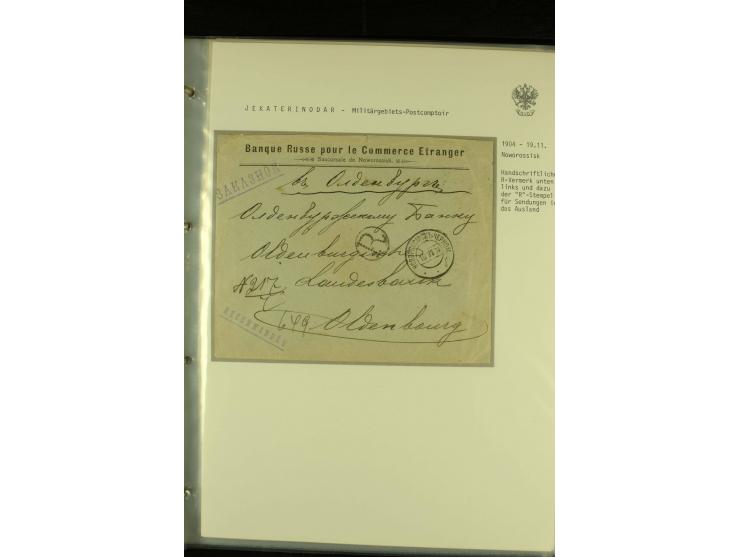 JEKATERINODAR - Militärgebiets-Postcomptoir
1904 - 19.11.
Noworossisk
Handschriftliche
R-Vermerk unten
links und dazu
der "R"-Stempel
für Sendungen in
das Ausland
Banque Russe pour le Commerce Etranger
Succursale de Noworossisk.
ЗАКАЗНОЕ
въ Олденбургъ
Олденбургскому Банку
Oldenburgische
№ 217 Landesbank
649 Oldenbourg
RECOMMANDÉE
R